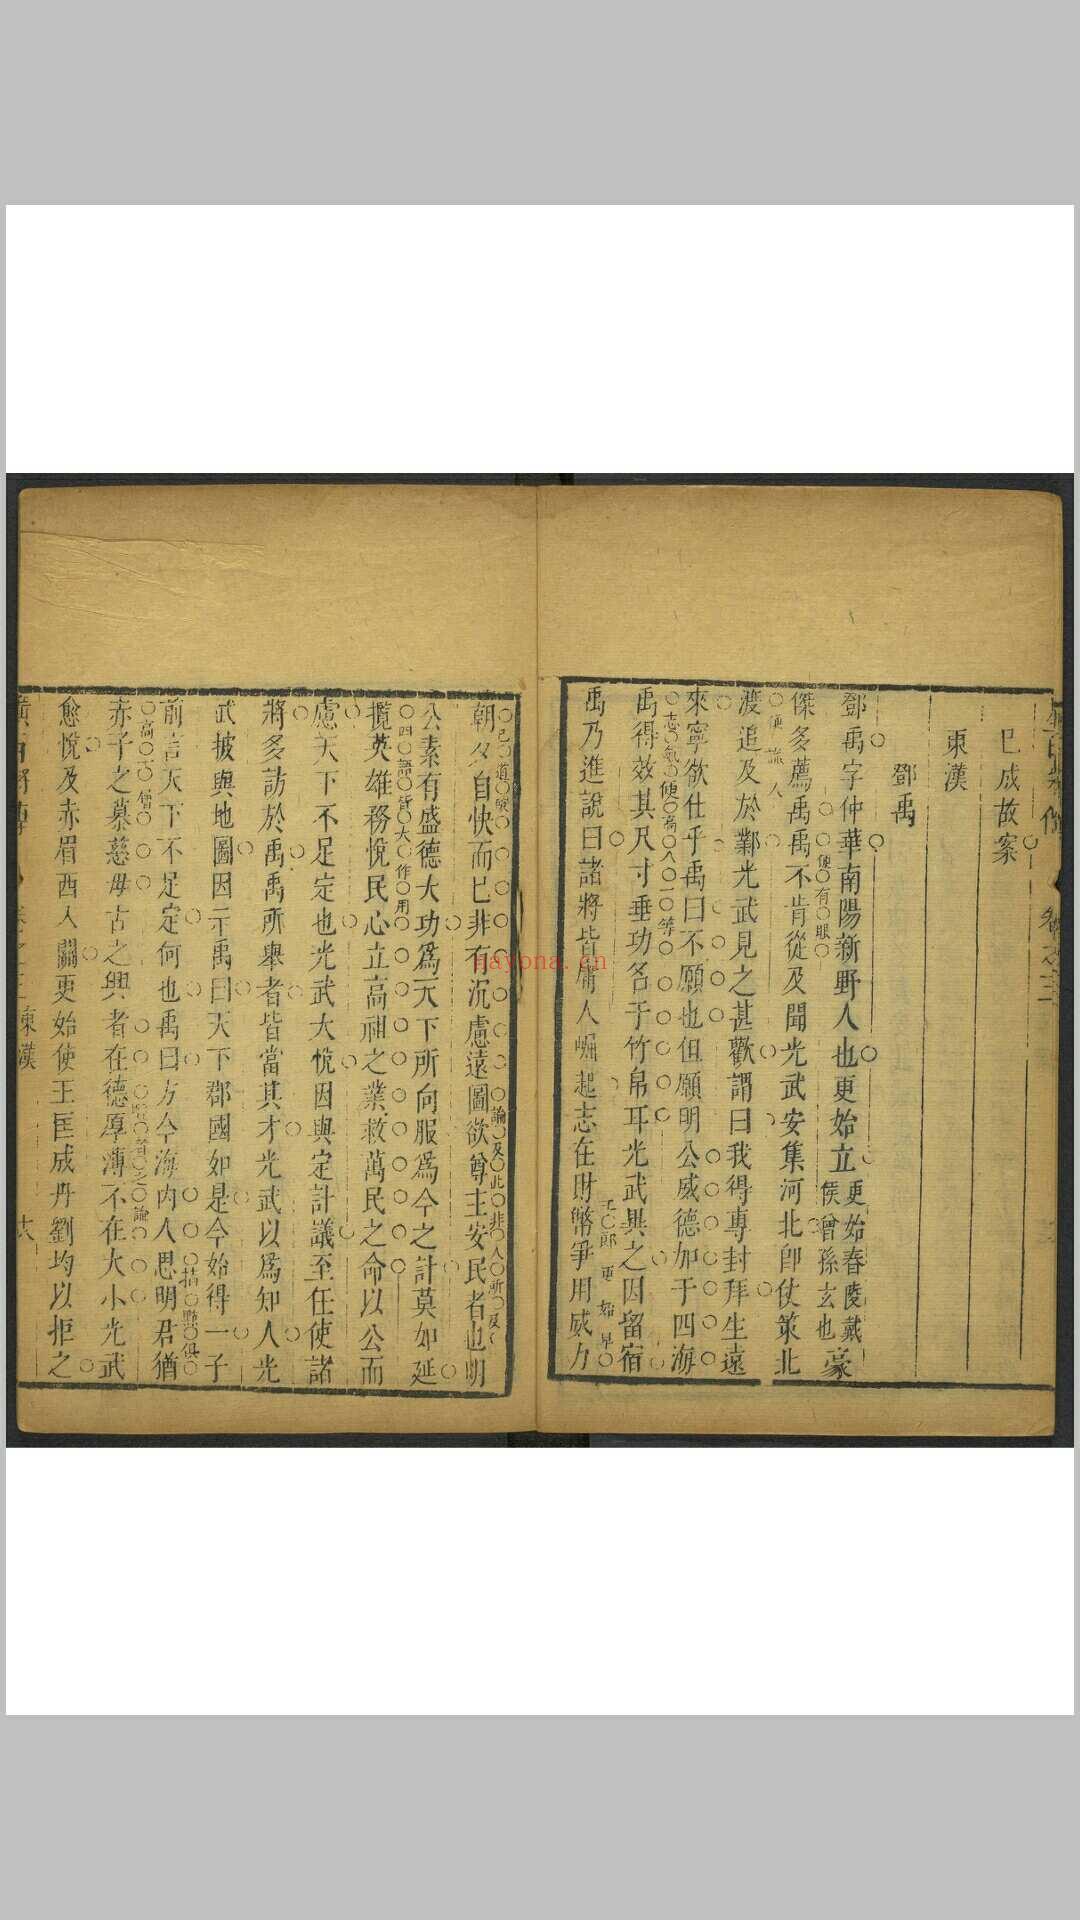 巳成故案
東漢
鄧禹
鄧禹字仲華南陽新野人也更始立更始春陵戴侯曾孫玄也豪
便有眼
傑多薦禹禹不肯從及聞光武安集河北卽仗策北
便識人
渡追及於鄴光武見之甚歡謂曰我得專封拜生遠
來寧欲仕乎禹曰不願也但願明公威德加于四海
志氣便高人一等
禹得效其尺寸垂功名于竹帛耳光武與之因留宿
王郎更始早
禹乃進說曰諸將皆庸人崛起志在財幣爭用威力
已道破
論及此非人所及
朝夕自快而巳非有沉慮遠圖欲尊主安民者也明
公素有盛德大功爲天下所向服爲今之計莫如延
四語皆大作用
攬英雄務悅民心立高祖之業救萬民之命以公而
慮天下不足定也光武大悅因與定計議至任使諸
將多訪於禹禹所舉者皆當其才光武以爲知人光
武披輿地圖因示禹曰天下郡國如是今始得一子
前言天下不足定何也禹曰方今海内人思明君猶
赤子之慕慈母古之興者在德厚薄不在大小光武
愈悅及赤眉西入關更始使王匡成丹劉均以拒之
東漢
nayona.cn